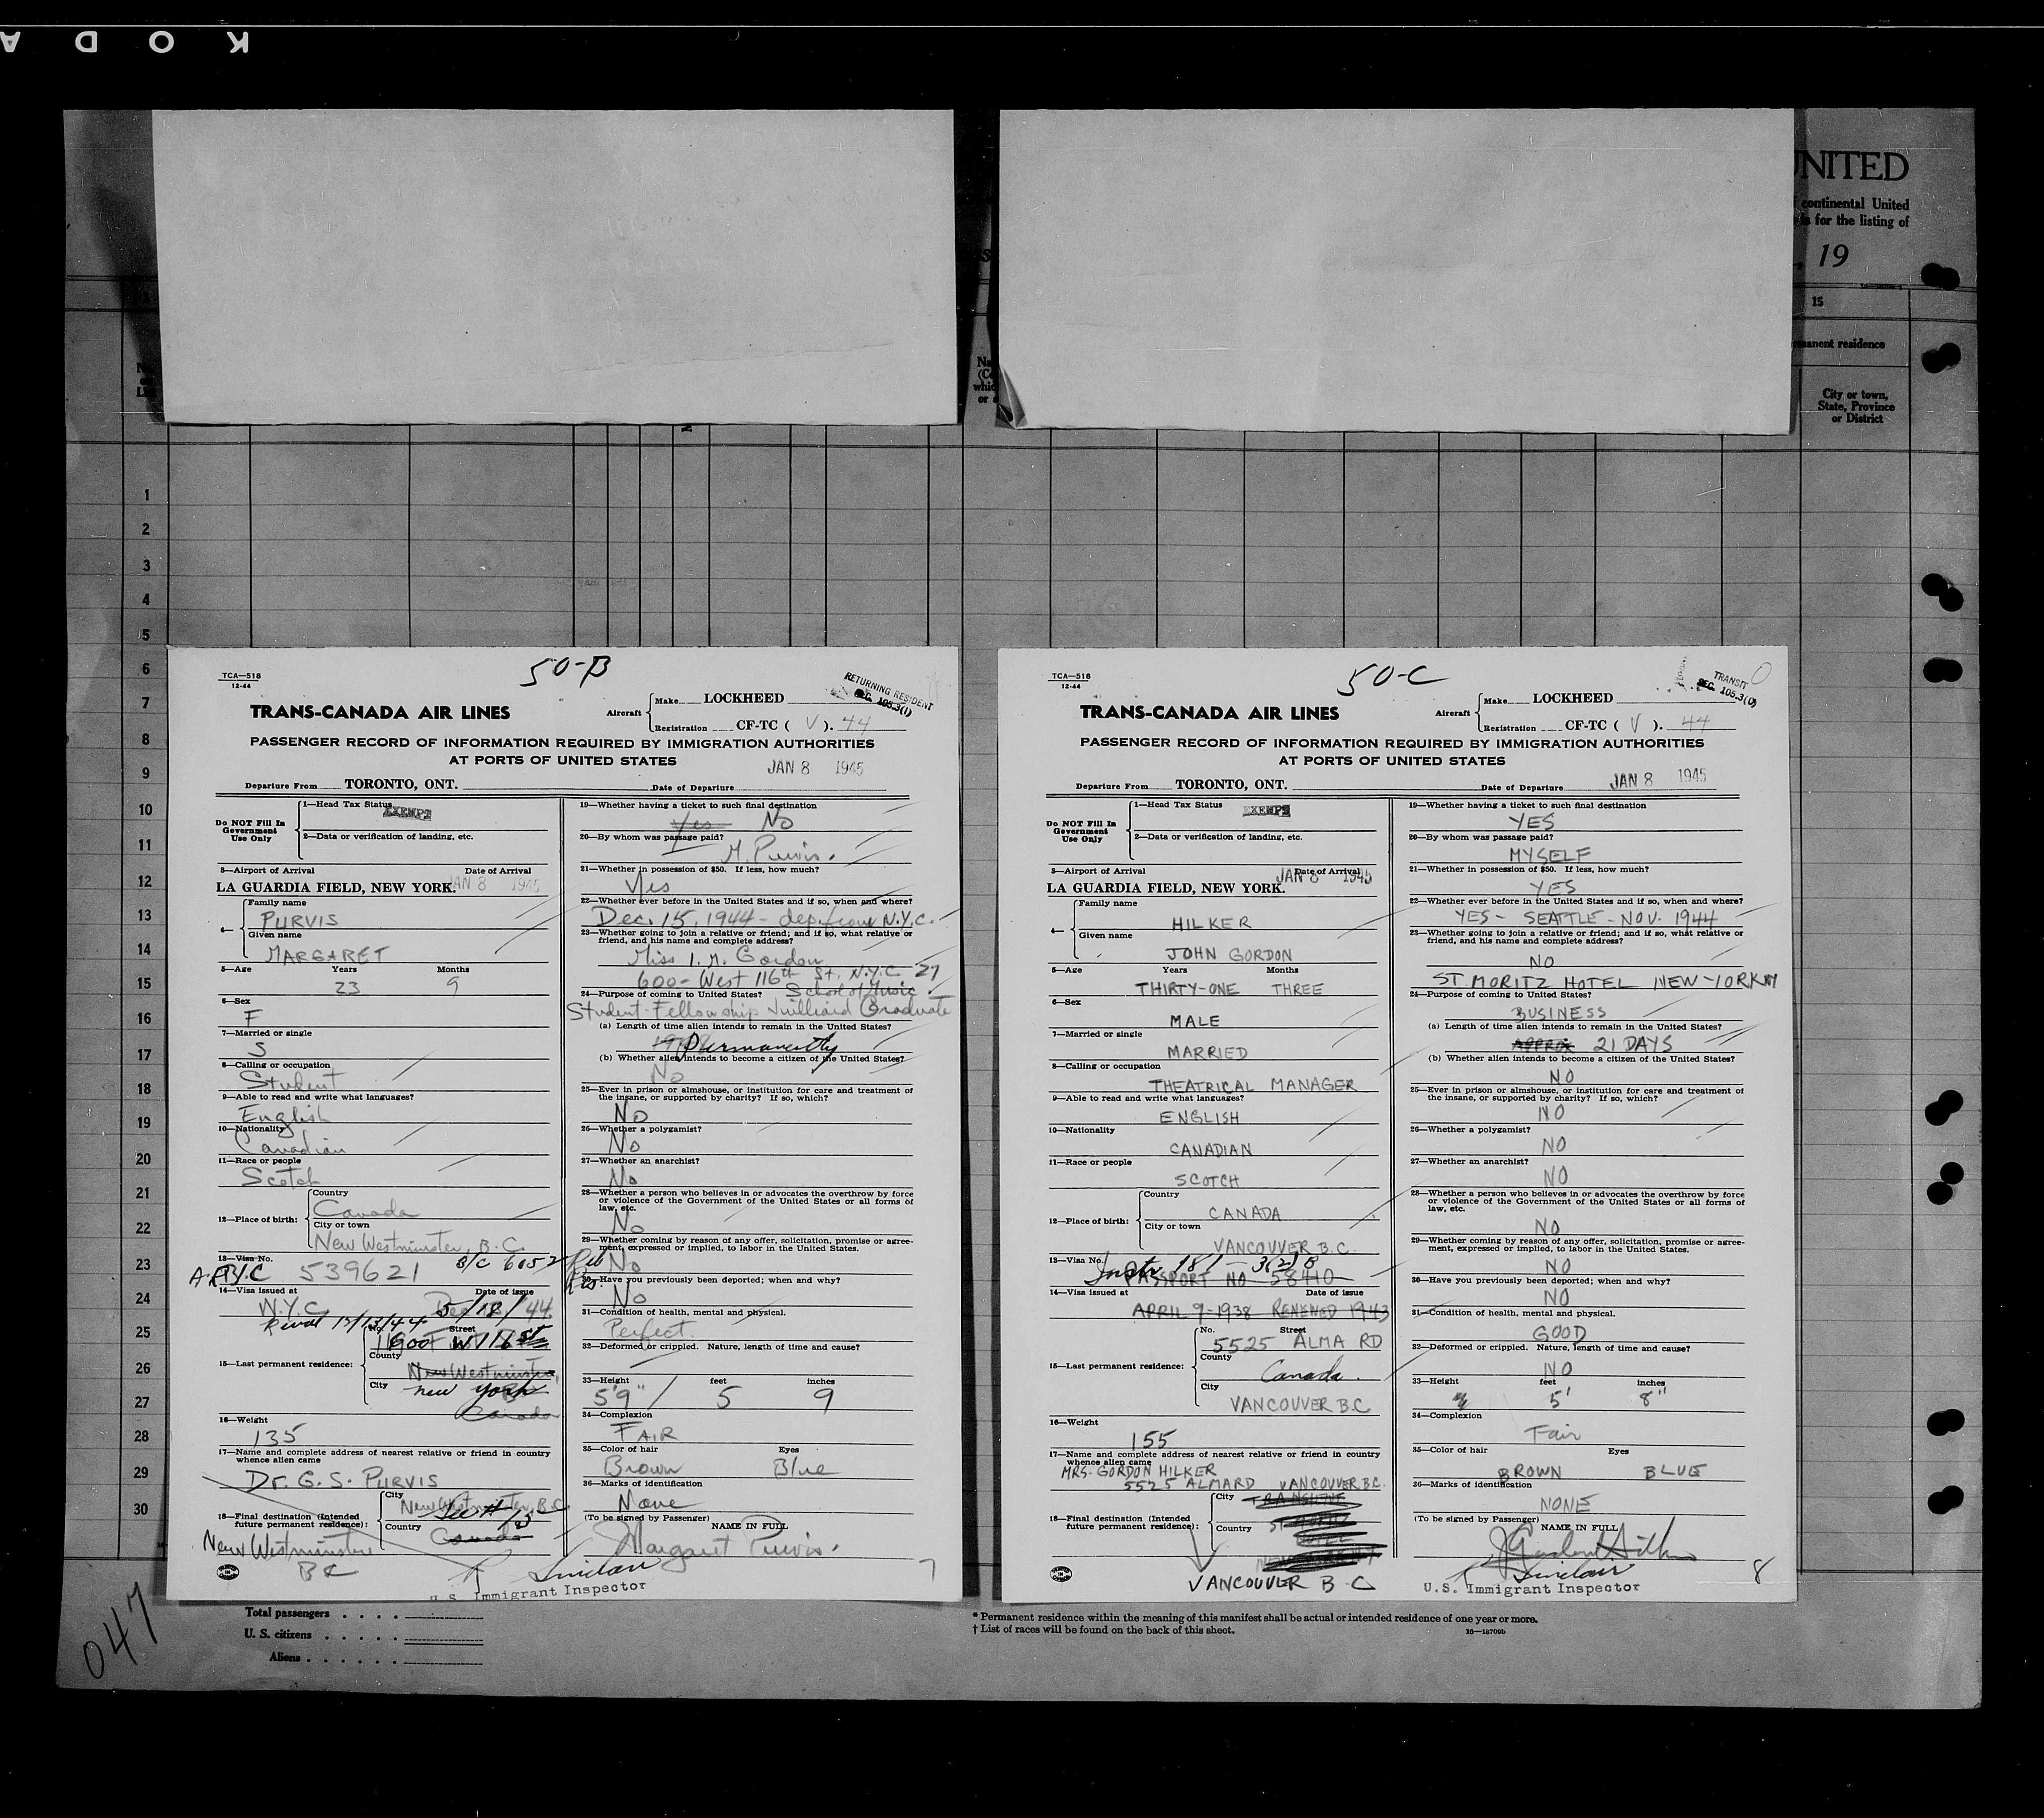 KODA
UNITED
continental United
is for the listing of
, 19
15
permanent residence
City or town,
State, Province
or District
1
2
3
4
5
6
7
8
9
10
11
12
13
14
15
16
17
18
19
20
21
22
23
24
25
26
27
28
29
30
50-B
TCA—518
12-44
RETURNING RESIDENT
SEC. 105.3(1)
TRANS-CANADA AIR LINES
Aircraft
Make LOCKHEED
Registration CF-TC ( V ). 44
PASSENGER RECORD OF INFORMATION REQUIRED BY IMMIGRATION AUTHORITIES
AT PORTS OF UNITED STATES
JAN 8 1945
Departure From TORONTO, ONT. Date of Departure
Do NOT Fill In
Government
Use Only
1—Head Tax Status
EXEMPT
2—Data or verification of landing, etc.
3—Airport of Arrival Date of Arrival
LA GUARDIA FIELD, NEW YORK. JAN 8 1945
4—
Family name
PURVIS
Given name
MARGARET
5—Age Years Months
23 9
6—Sex
F
7—Married or single
S
8—Calling or occupation
Student
9—Able to read and write what languages?
English
10—Nationality
Canadian
11—Race or people
Scotch
12—Place of birth:
Country
Canada
City or town
New Westminster, B.C.
13—Visa No.
B/C 6152
539621
14—Visa issued at Date of issue
N.Y.C. /44
15—Last permanent residence:
No. Street
600 W 116 St
County
New Westminster
City
new york
Canada
16—Weight
135
17—Name and complete address of nearest relative or friend in country
whence alien came
Dr. G. S. PURVIS
18—Final destination (Intended
future permanent residence):
City
New Westminster, B.C.
Country
Canada
New Westminster
BC
19—Whether having a ticket to such final destination
Yes No
20—By whom was passage paid?
M. Purvis.
21—Whether in possession of $50. If less, how much?
Yes
22—Whether ever before in the United States and if so, when and where?
Dec. 15, 1944 - dep. from N.Y.C.
23—Whether going to join a relative or friend; and if so, what relative or
friend, and his name and complete address?
Miss I. M. Gordon
600 - West 116th St. N.Y.C. 27
24—Purpose of coming to United States? School of Music
Student Fellowship Juilliard Graduate
(a) Length of time alien intends to remain in the United States?
Permanently
(b) Whether alien intends to become a citizen of the United States?
No
25—Ever in prison or almshouse, or institution for care and treatment of
the insane, or supported by charity? If so, which?
No
26—Whether a polygamist?
No
27—Whether an anarchist?
No
28—Whether a person who believes in or advocates the overthrow by force
or violence of the Government of the United States or all forms of
law, etc.
No
29—Whether coming by reason of any offer, solicitation, promise or agree-
ment, expressed or implied, to labor in the United States.
No
30—Have you previously been deported; when and why?
No
31—Condition of health, mental and physical.
Perfect.
32—Deformed or crippled. Nature, length of time and cause?
33—Height feet inches
5'9" 5 9
34—Complexion
FAIR
35—Color of hair Eyes
Brown Blue
36—Marks of identification
None
(To be signed by Passenger) NAME IN FULL
Margaret Purvis.
Sinclair
U.S. Immigrant Inspector
7
50-C
TCA—518
12-44
TRANSIT
SEC. 105.3(1)
0
TRANS-CANADA AIR LINES
Aircraft
Make LOCKHEED
Registration CF-TC ( V ). 44
PASSENGER RECORD OF INFORMATION REQUIRED BY IMMIGRATION AUTHORITIES
AT PORTS OF UNITED STATES
JAN 8 1945
Departure From TORONTO, ONT. Date of Departure
Do NOT Fill In
Government
Use Only
1—Head Tax Status
EXEMPT
2—Data or verification of landing, etc.
3—Airport of Arrival Date of Arrival
JAN 8 1945
LA GUARDIA FIELD, NEW YORK.
4—
Family name
HILKER
Given name
JOHN GORDON
5—Age Years Months
THIRTY-ONE THREE
6—Sex
MALE
7—Married or single
MARRIED
8—Calling or occupation
THEATRICAL MANAGER
9—Able to read and write what languages?
ENGLISH
10—Nationality
CANADIAN
11—Race or people
SCOTCH
12—Place of birth:
Country
CANADA
City or town
VANCOUVER B.C.
13—Visa No.
PASSPORT NO 58410
14—Visa issued at Date of issue
APRIL 9-1938 RENEWED 1943
15—Last permanent residence:
No. Street
5525 ALMA RD
County
Canada.
City
VANCOUVER B.C
16—Weight
155
17—Name and complete address of nearest relative or friend in country
whence alien came
MRS. GORDON HILKER
5525 ALMA RD VANCOUVER B.C.
18—Final destination (Intended
future permanent residence):
City
Country
VANCOUVER B.C
19—Whether having a ticket to such final destination
YES
20—By whom was passage paid?
MYSELF
21—Whether in possession of $50. If less, how much?
YES
22—Whether ever before in the United States and if so, when and where?
YES - SEATTLE - NOV. 1944
23—Whether going to join a relative or friend; and if so, what relative or
friend, and his name and complete address?
NO
ST MORITZ HOTEL NEW YORK NY
24—Purpose of coming to United States?
BUSINESS
(a) Length of time alien intends to remain in the United States?
APPROX 21 DAYS
(b) Whether alien intends to become a citizen of the United States?
NO
25—Ever in prison or almshouse, or institution for care and treatment of
the insane, or supported by charity? If so, which?
NO
26—Whether a polygamist?
NO
27—Whether an anarchist?
NO
28—Whether a person who believes in or advocates the overthrow by force
or violence of the Government of the United States or all forms of
law, etc.
NO
29—Whether coming by reason of any offer, solicitation, promise or agree-
ment, expressed or implied, to labor in the United States.
NO
30—Have you previously been deported; when and why?
NO
31—Condition of health, mental and physical.
GOOD
32—Deformed or crippled. Nature, length of time and cause?
NO
33—Height feet inches
5' 8"
34—Complexion
Fair
35—Color of hair Eyes
BROWN BLUE
36—Marks of identification
NONE
(To be signed by Passenger) NAME IN FULL
J Gordon Hilker
Sinclair
U.S. Immigrant Inspector
8
047
Total passengers . . . .
U. S. citizens . . . . .
Aliens . . . . . .
* Permanent residence within the meaning of this manifest shall be actual or intended residence of one year or more.
† List of races will be found on the back of this sheet.
16—18709b